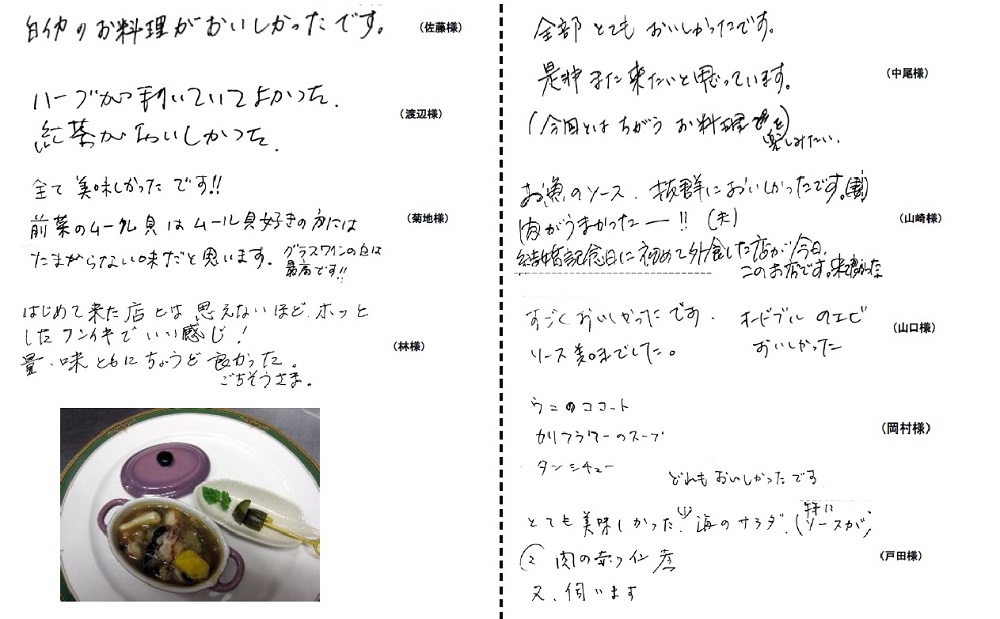 のお料理がおいしかったです。
(佐藤様)
ハーブが利いていてよかった。
紅茶がおいしかった。
(渡辺様)
全て美味しかったです!!
前菜のムール貝はムール貝好きの方には
たまらない味だと思います。グラスワインの白は
最高です!!
(菊地様)
はじめて来た店とは思えないほど、ホッと
したフンイキでいい感じ!
量・味ともにちょうど良かった。
ごちそうさま。
(林様)
全部とてもおいしかったです。
是非また来たいと思っています。
(今回とはちがうお料理を)
楽しみたい。
(中尾様)
お魚のソース、抜群においしかったです。
肉がうまかったー!!(夫)
結婚記念日に初めて外食した店が今日、
このお店です。来て良かった
(山崎様)
すごくおいしかったです。
ソース美味でした。
オードブルのエビ
おいしかった
(山口様)
ウニのココート
カリフラワーのスープ
タンシチュー
どれもおいしかったです
(岡村様)
とても美味しかった 海のサラダ、(特に
ソースが)
② 肉の赤ワイン煮
又、伺います
(戸田様)